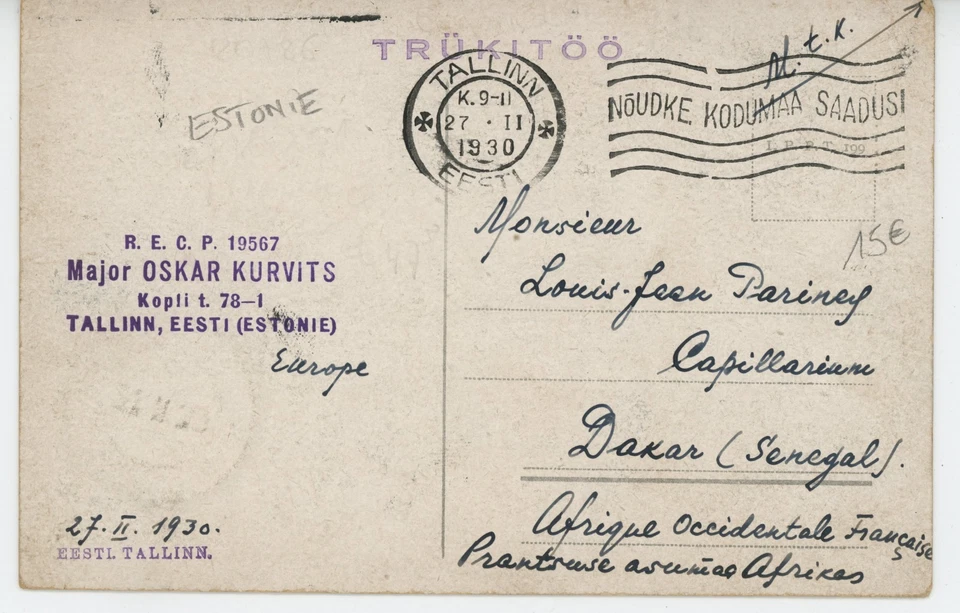 TRÜKITÖÖ
M. t. K.
ESTONIE
TALLINN
K. 9-11
27 · II
1930
EESTI
NÕUDKE KODUMAA SAADUSI
L. P. P. T. 199
15€
R. E. C. P. 19567
Major OSKAR KURVITS
Kopli t. 78–1
TALLINN, EESTI (ESTONIE)
Europe
27. II. 1930.
EESTI. TALLINN.
Monsieur
Louis-Jean Pariney
Capillarium
Dakar (Senegal).
Afrique Occidentale Française
Prantsuse asumaa Afrikas